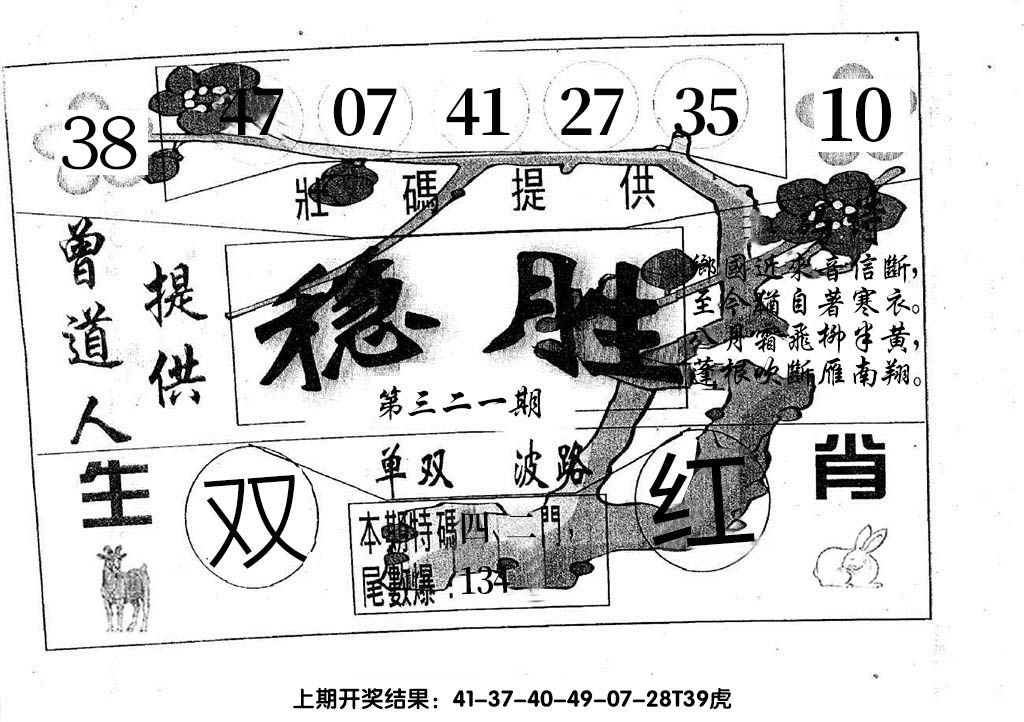 38 47 07 41 27 35 10
壯碼提供
特
曾道人
提供
稳胜
第三二一期
鄉國近來音信斷，
至今猶自著寒衣。
八月霜飛柳半黃，
蓬根吹斷雁南翔。
单双 波路
双
红
生
肖
本期特碼四、二門，
尾數爆：134
上期开奖结果：41-37-40-49-07-28T39虎